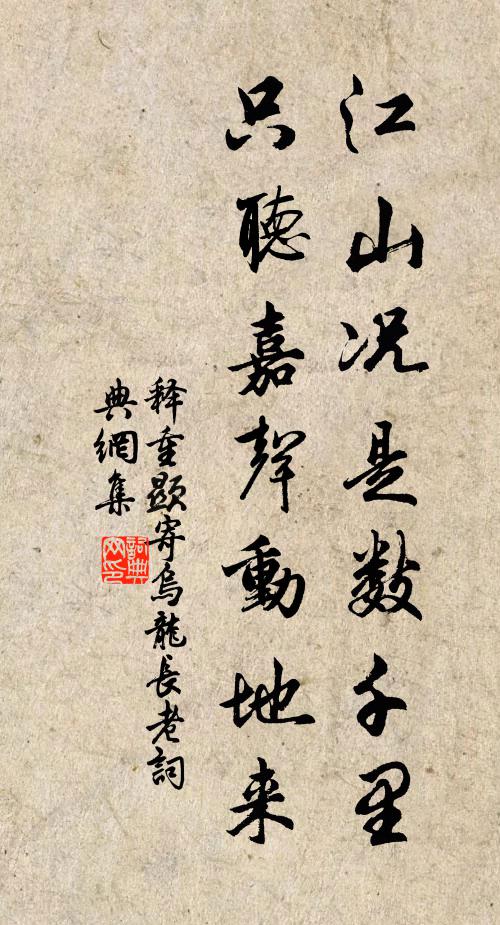 江山况是数千里
只聴嘉聲動地来
釋重顯寄烏龍長老詞
典網集
詞典网印